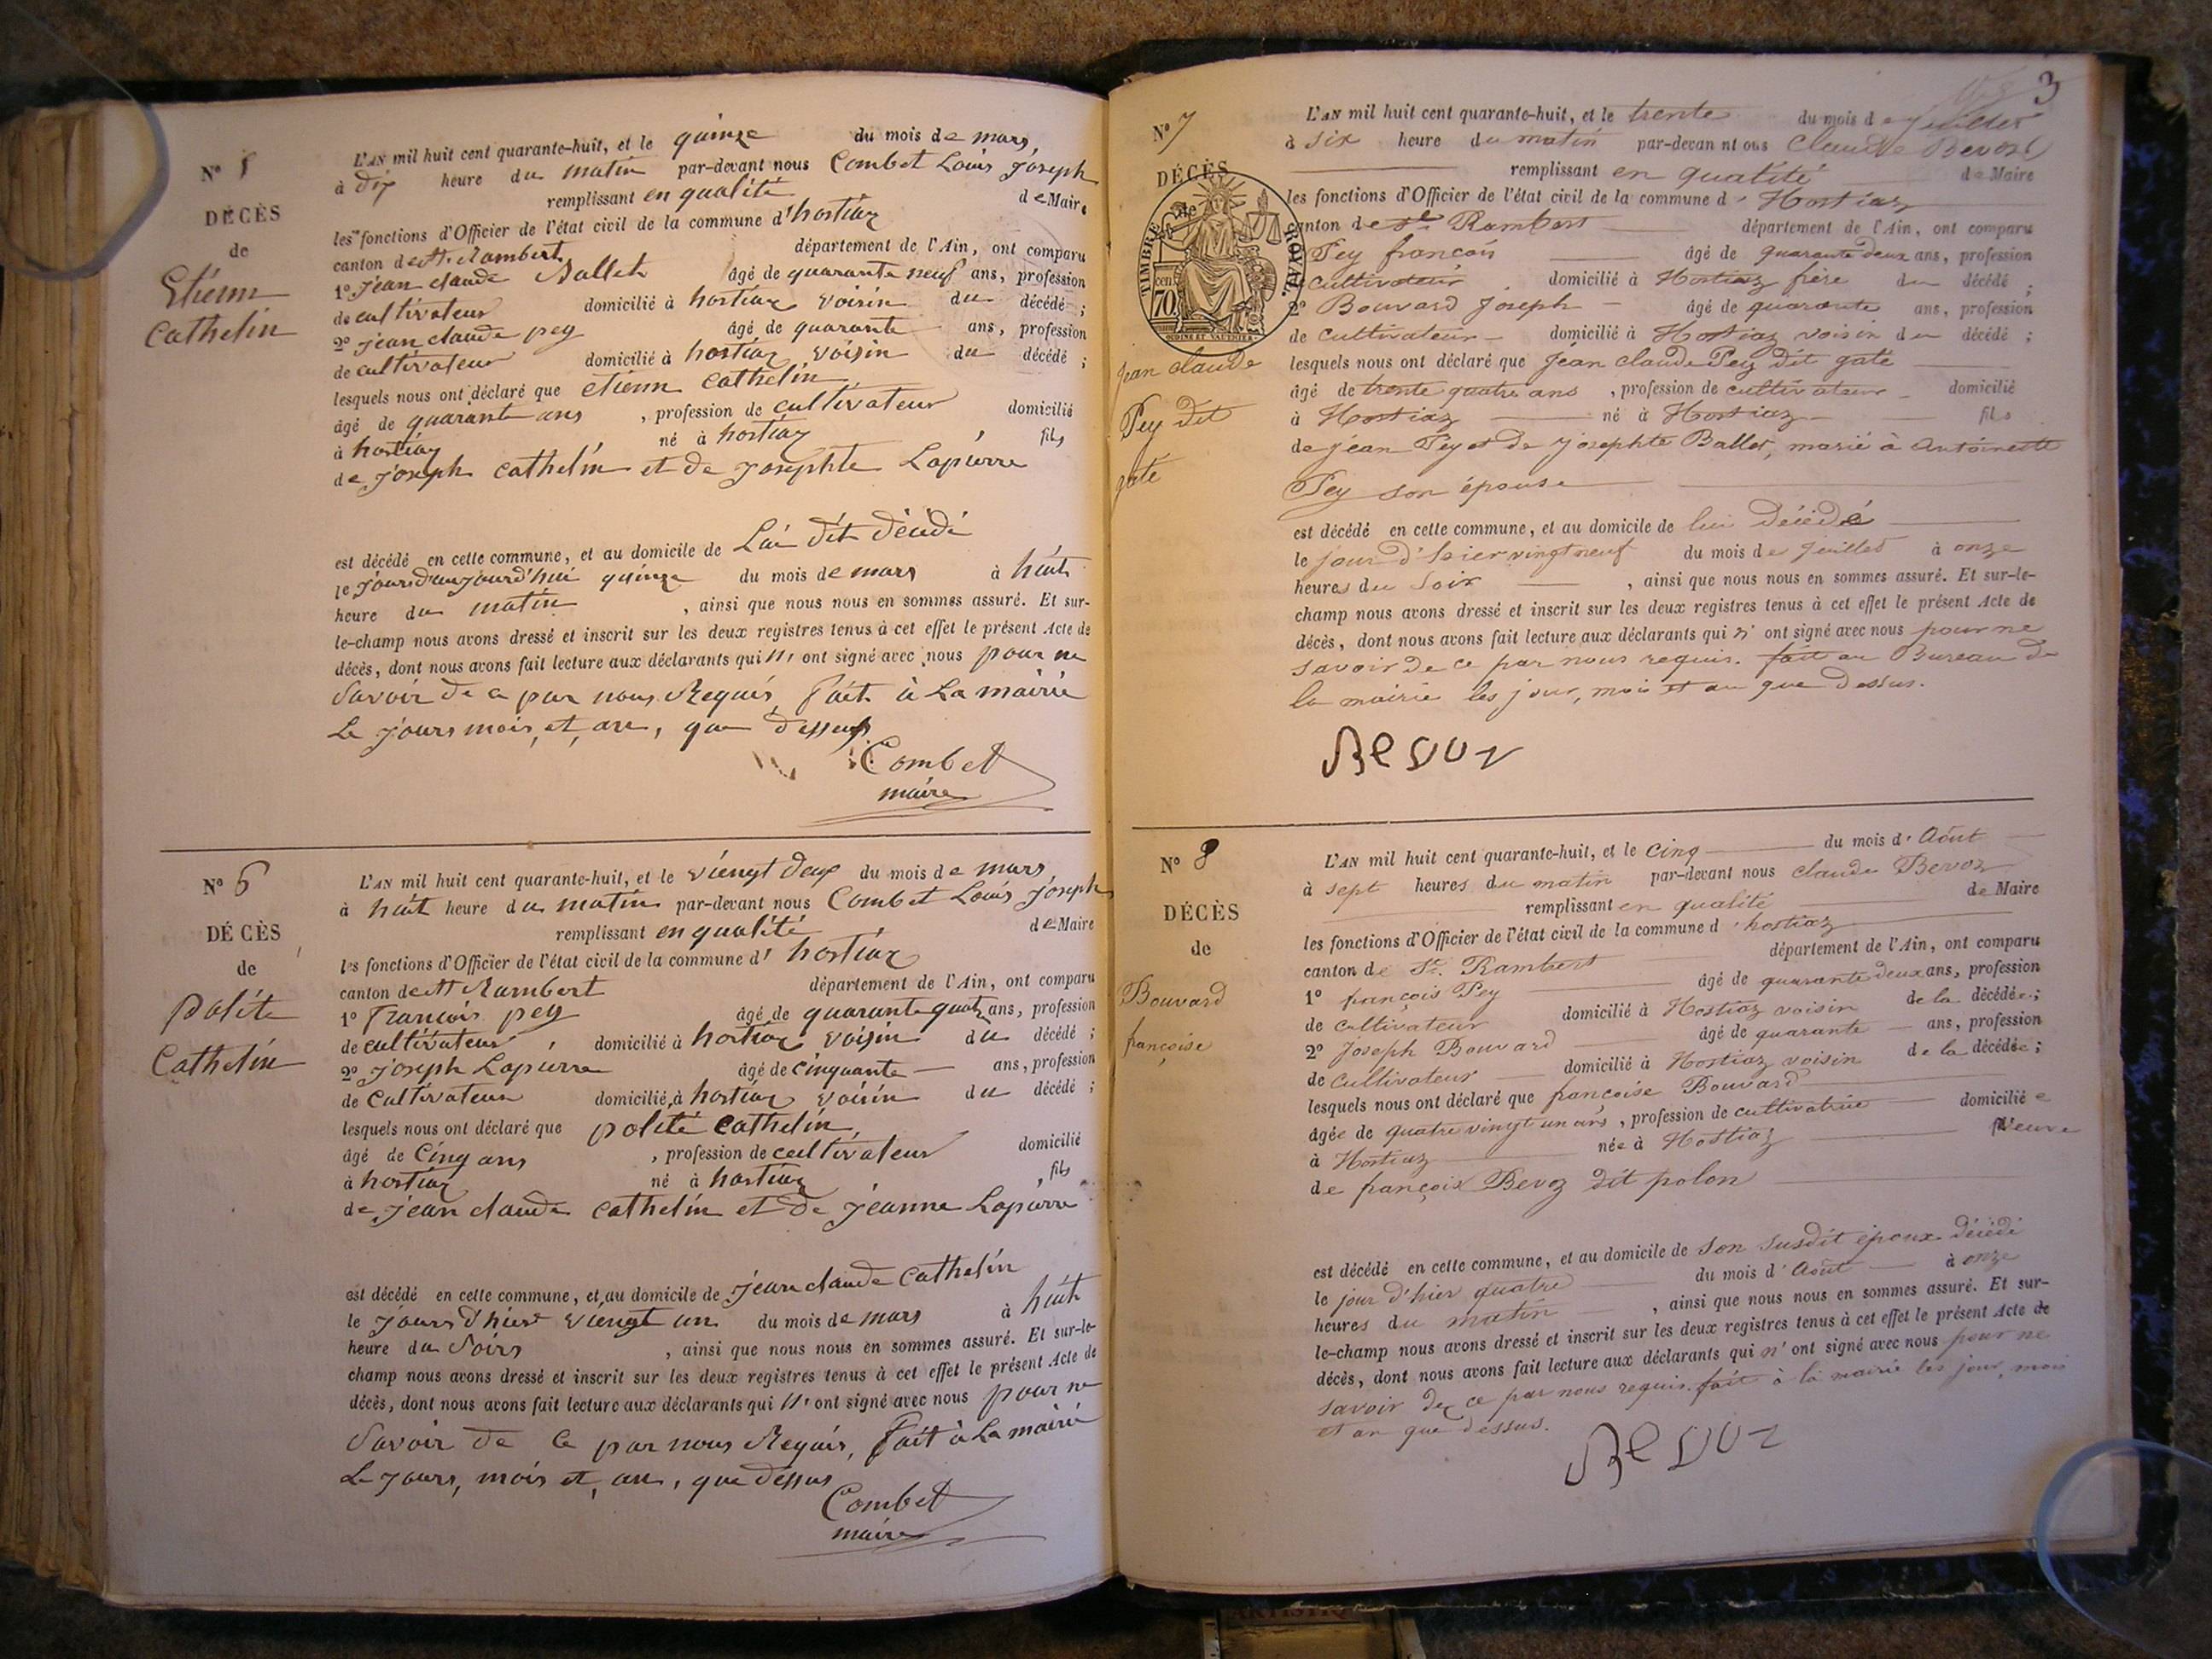 N° 5
DÉCÈS
de
Etienn
Cathelin
L'AN mil huit cent quarante-huit, et le quinze du mois de mars
à dix heure du matin par-devant nous Combet Louis Joseph
remplissant en qualité de Maire
les fonctions d'Officier de l'état civil de la commune d'hostiaz
canton de St. Rambert département de l'Ain, ont comparu
1° Jean claude Ballet âgé de quarante neuf ans, profession
de cultivateur domicilié à hostiaz voisin du décédé ;
2° jean claude pey âgé de quarante ans, profession
de cultivateur domicilié à hostiaz voisin du décédé ;
lesquels nous ont déclaré que etienn cathelin
âgé de quarante ans , profession de cultivateur domicilié
à hostiaz né à hostiaz fils
de joseph cathelin et de josephte Lapierre
est décédé en cette commune, et au domicile de Lui dit décédé
le jours d'aujourd'hui quinze du mois de mars à huit
heure du matin , ainsi que nous nous en sommes assuré. Et sur-
le-champ nous avons dressé et inscrit sur les deux registres tenus à cet effet le présent Acte de
décès, dont nous avons fait lecture aux déclarants qui n' ont signé avec nous pour ne
savoir de ce par nous Requis, fait à La mairie
Le jours mois, et, an, que dessus
Combet
maire
N° 6
DÉCÈS
de
Polite
Cathelin
L'AN mil huit cent quarante-huit, et le viengt deux du mois de mars
à huit heure du matin par-devant nous Combet Louis Joseph
remplissant en qualité de Maire
les fonctions d'Officier de l'état civil de la commune d' hostiaz
canton de St Rambert département de l'Ain, ont comparu
1° François pey âgé de quarante quatre ans, profession
de cultivateur domicilié à hostiaz voisin du décédé ;
2° joseph Lapierre âgé de cinquante ans, profession
de cultivateur domicilié à hostiaz voisin du décédé ;
lesquels nous ont déclaré que polite cathelin,
âgé de cinq ans , profession de cultivateur domicilié
à hostiaz né à hostiaz fils
de jean claude cathelin et de jeanne Lapierre
est décédé en cette commune, et au domicile de jean claude cathelin
le jours d'hier viengt un du mois de mars à huit
heure du soirs , ainsi que nous nous en sommes assuré. Et sur-le-
champ nous avons dressé et inscrit sur les deux registres tenus à cet effet le présent Acte de
décès, dont nous avons fait lecture aux déclarants qui n' ont signé avec nous pour ne
savoir de ce par nous Requis, fait à La mairie
Le jours, mois et, an, que dessus
Combet
maire
3
N° 7
DÉCÈS
TIMBRE ROYAL.
70 cen
Jean claude
Pey dit
gaté
L'AN mil huit cent quarante-huit, et le trente du mois de juillet
à six heure du matin par-devan nt ous Claude Bevoz
remplissant en qualité de Maire
les fonctions d'Officier de l'état civil de la commune d' Hostiaz
canton de St Rambert département de l'Ain, ont comparu
Pey françois âgé de quarante deux ans, profession
cultivateur domicilié à Hostiaz frère du décédé ;
2° Bouvard Joseph âgé de quarante ans, profession
de cultivateur domicilié à Hostiaz voisin du décédé ;
lesquels nous ont déclaré que Jean claude Pey dit gaté
âgé de trente quatre ans , profession de cultivateur domicilié
à Hostiaz né à Hostiaz fils
de jean Pey et de josephte Ballet, marié à Antoinette
Pey son épouse
est décédé en cette commune, et au domicile de lui décédé
le jour d'hier vingt neuf du mois de juillet à onze
heures du soir , ainsi que nous nous en sommes assuré. Et sur-le-
champ nous avons dressé et inscrit sur les deux registres tenus à cet effet le présent Acte de
décès, dont nous avons fait lecture aux déclarants qui n' ont signé avec nous pour ne
savoir de ce par nous requis. fait au Bureau de
la mairie les jour, mois et an que dessus.
Bevoz
N° 8
DÉCÈS
de
Bouvard
françoise
L'AN mil huit cent quarante-huit, et le cinq du mois d' Août
à sept heures du matin par-devant nous claude Bevoz
remplissant en qualité de Maire
les fonctions d'Officier de l'état civil de la commune d' hostiaz
canton de St. Rambert département de l'Ain, ont comparu
1° françois Pey âgé de quarante deux ans, profession
de cultivateur domicilié à Hostiaz voisin de la décédée ;
2° Joseph Bouvard âgé de quarante ans, profession
de cultivateur domicilié à Hostiaz voisin de la décédée ;
lesquels nous ont déclaré que françoise Bouvard
âgée de quatre vingt un ans , profession de cultivatrice domicilié e
à Hostiaz née à Hostiaz Veuve
de françois Bevoz dit polon
est décédé en cette commune, et au domicile de son susdit époux décédé
le jour d'hier quatre du mois d' Août à onze
heures du matin , ainsi que nous nous en sommes assuré. Et sur-
le-champ nous avons dressé et inscrit sur les deux registres tenus à cet effet le présent Acte de
décès, dont nous avons fait lecture aux déclarants qui n' ont signé avec nous pour ne
savoir de ce par nous requis. fait à la mairie les jour, mois
et an que dessus.
Bevoz